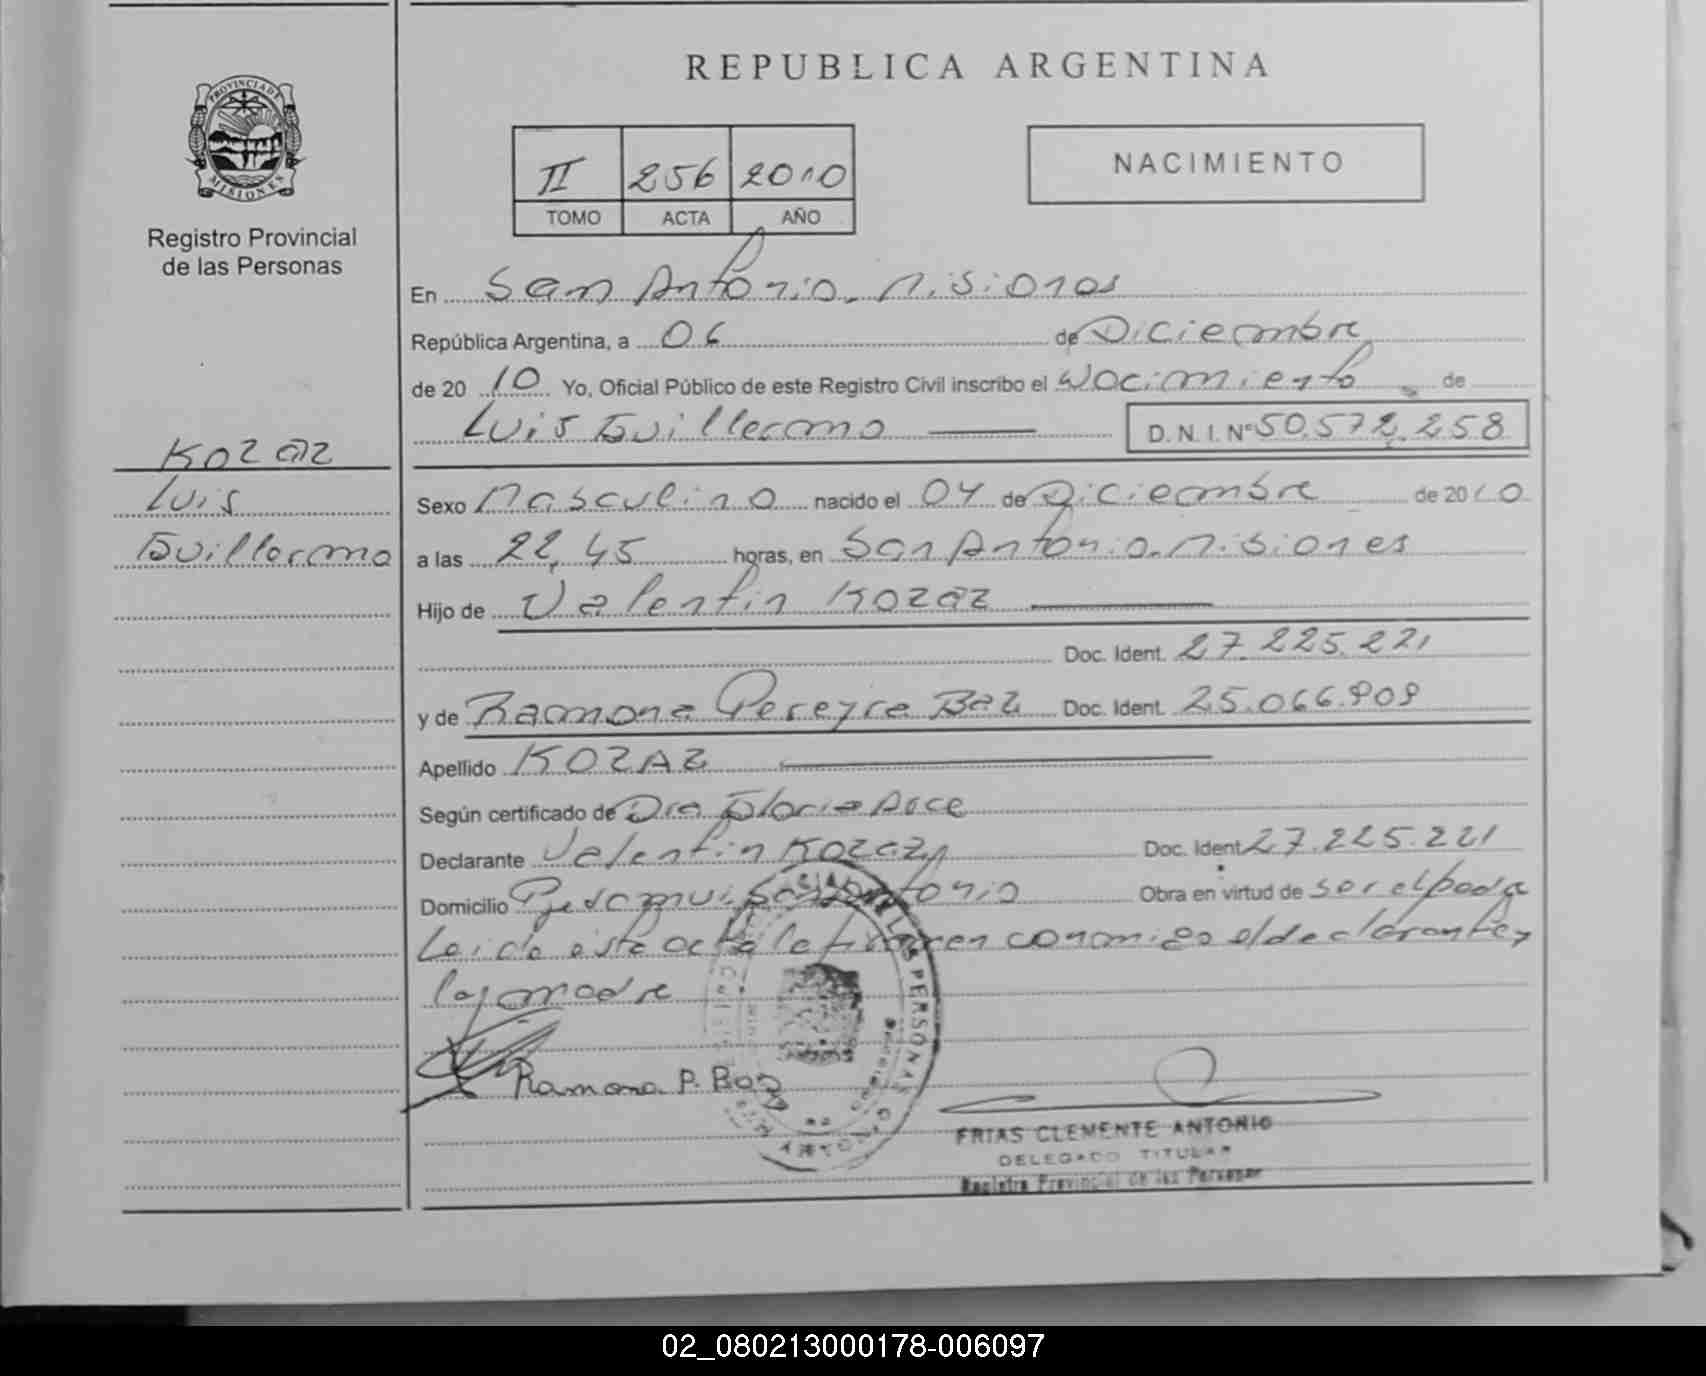 REPUBLICA ARGENTINA
PROVINCIA DE
MISIONES
Registro Provincial
de las Personas
II 256 2010
TOMO ACTA AÑO
NACIMIENTO
En San Antonio. Misiones
República Argentina, a 06 de Diciembre
de 2010 Yo, Oficial Público de este Registro Civil inscribo el Nacimiento de
Luis Guillermo D.N.I.Nº 50.572.258
Kozaz
Luis
Guillermo
Sexo Masculino nacido el 04 de Diciembre de 2010
a las 22,45 horas, en San Antonio. Misiones
Hijo de Valentin Kozaz
Doc. Ident. 27.225.221
y de Ramona Pereyra Baz Doc. Ident. 25.066.909
Apellido KOZAZ
Según certificado de Dra Gloria Arce
Declarante Valentin Kozaz Doc. Ident 27.225.221
Domicilio San Antonio Obra en virtud de ser el padre
Leida este acta la firman conmigo el declarante y
la madre
Ramona P. Baz
LAS PERSONAS
FRIAS CLEMENTE ANTONIO
DELEGADO TITULAR
Registro Provincial de las Personas
02_080213000178-006097